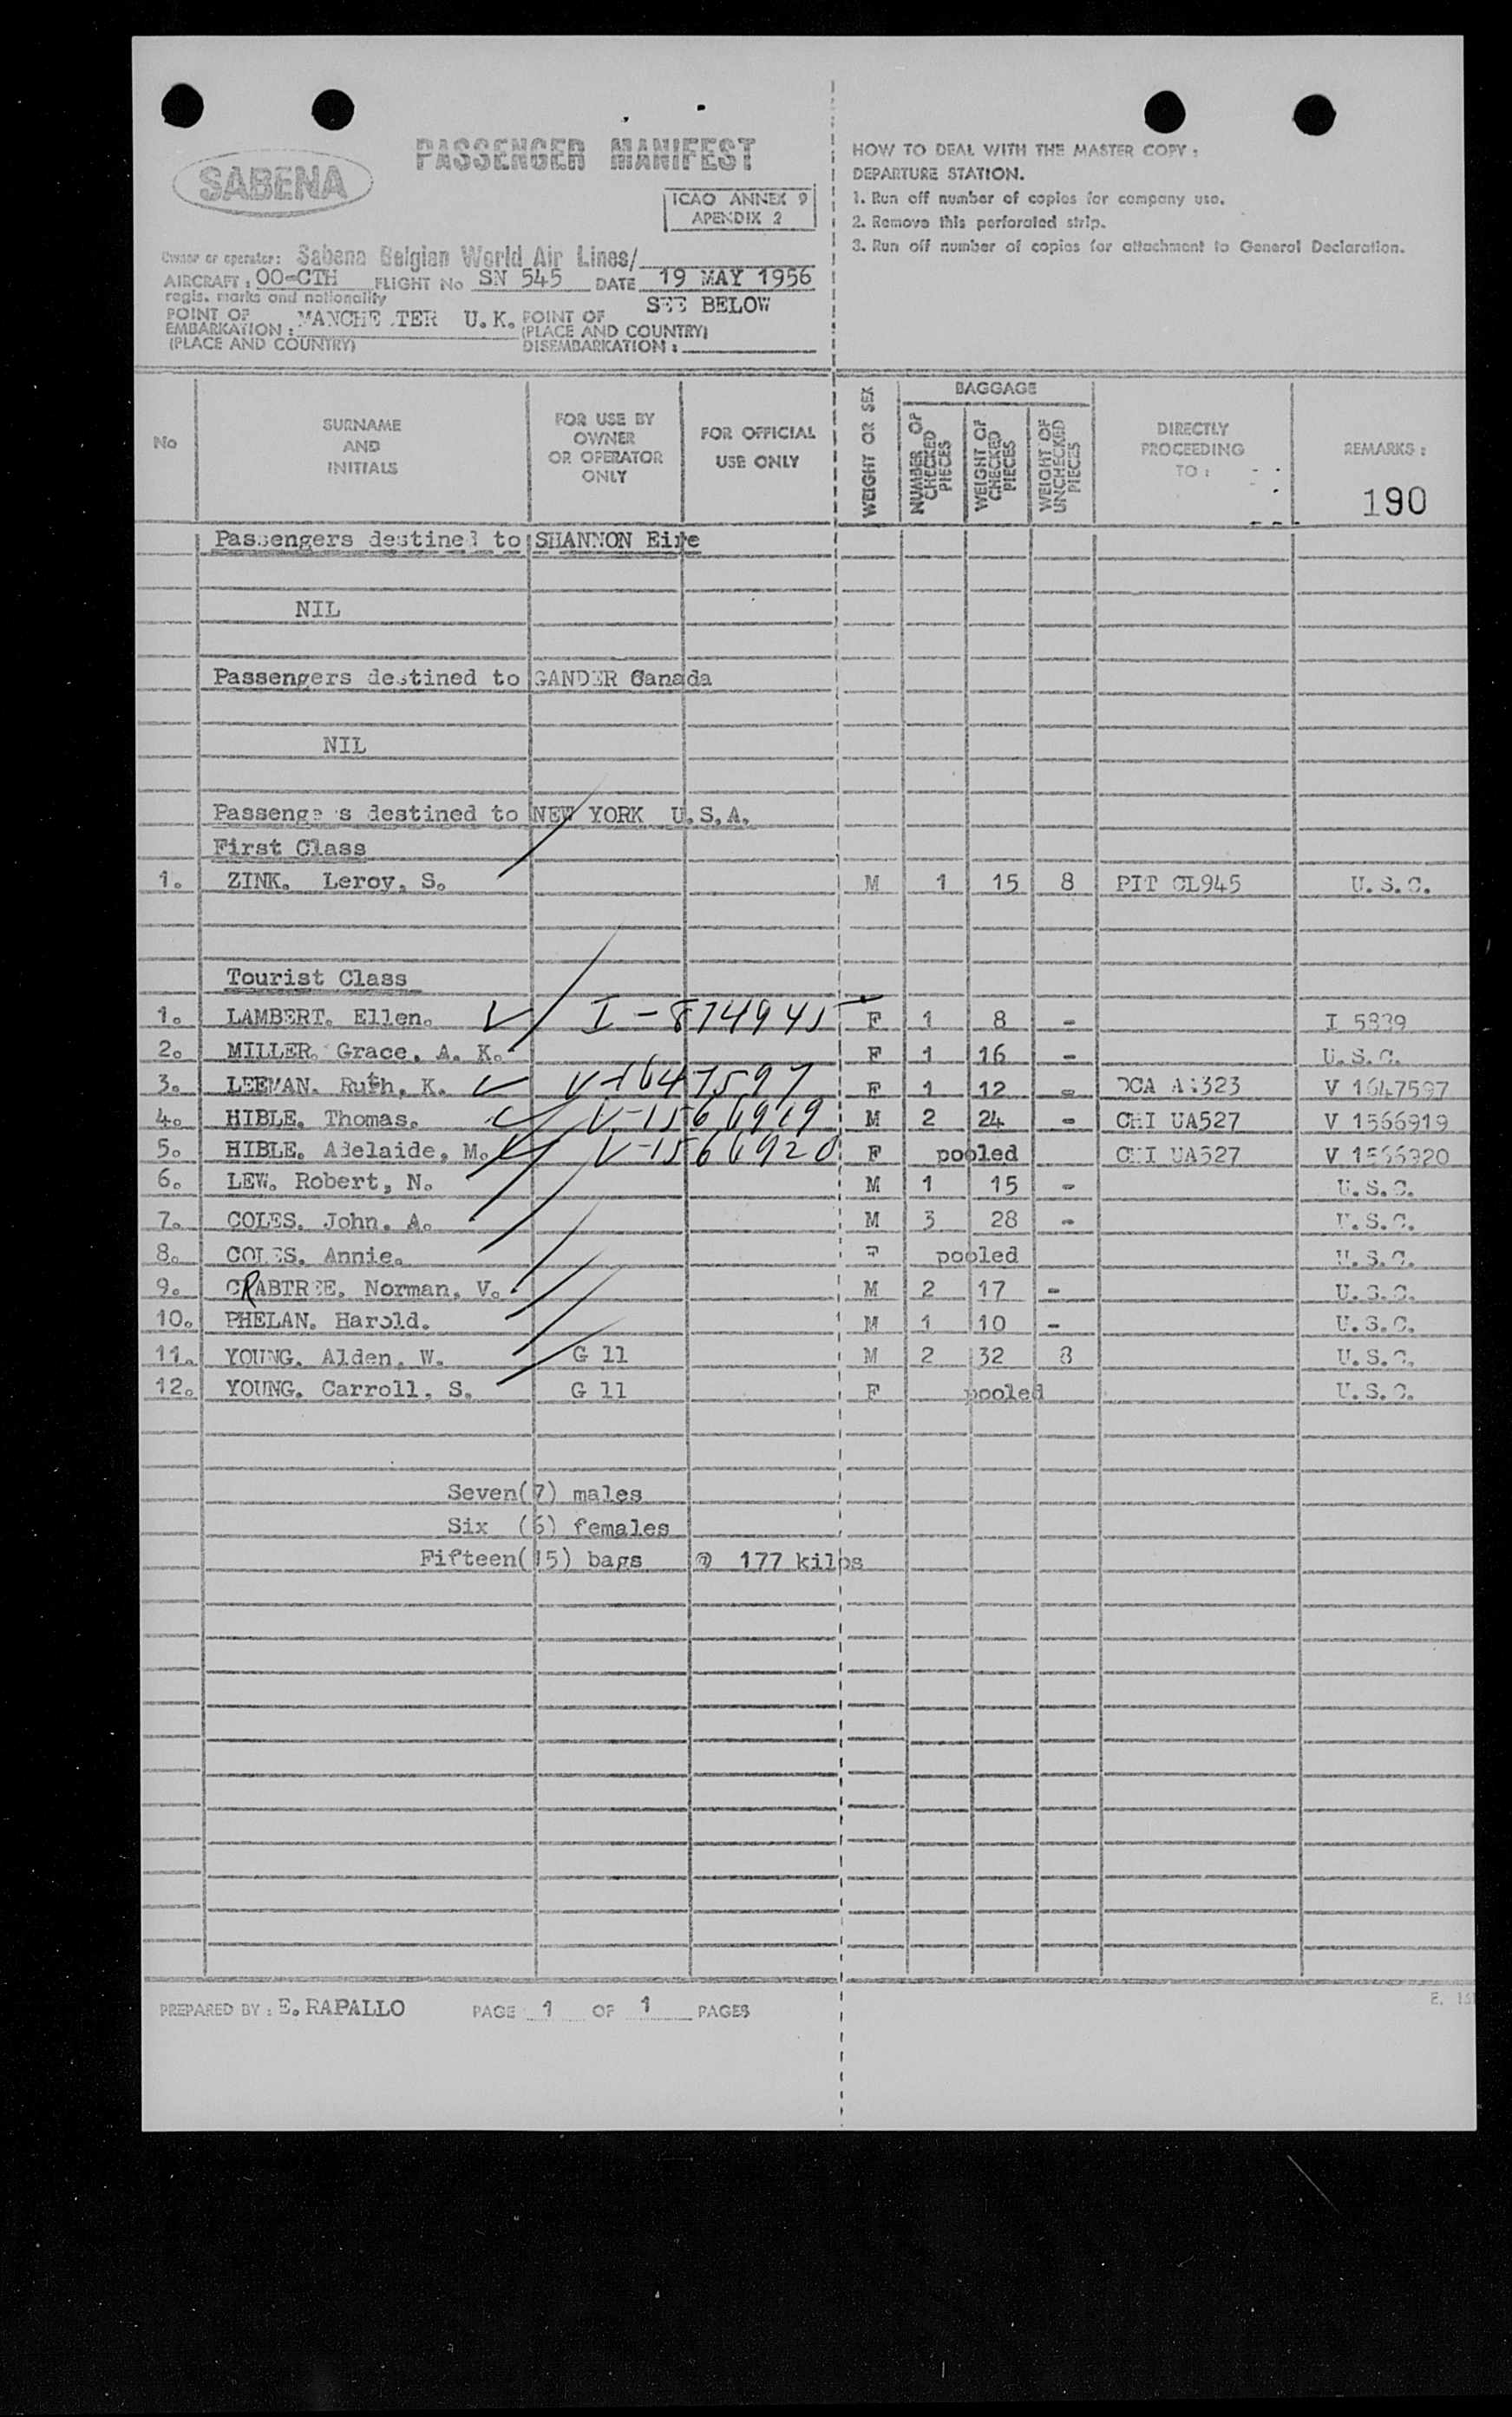 PASSENGER MANIFEST
SABENA
ICAO ANNEX 9
APENDIX 2
Owner or operator: Sabena Belgian World Air Lines/
AIRCRAFT: OO-CTH FLIGHT No SN 545 DATE 19 MAY 1956
regis. marks and nationality
SEE BELOW
POINT OF EMBARKATION: MANCHE TER U.K.
(PLACE AND COUNTRY)
POINT OF
(PLACE AND COUNTRY)
DISEMBARKATION:
HOW TO DEAL WITH THE MASTER COPY:
DEPARTURE STATION.
1. Run off number of copies for company use.
2. Remove this perforated strip.
3. Run off number of copies for attachment to General Declaration.
No
SURNAME AND INITIALS
FOR USE BY OWNER OR OPERATOR ONLY
FOR OFFICIAL USE ONLY
WEIGHT OR SEX
BAGGAGE
NUMBER OF CHECKED PIECES
WEIGHT OF CHECKED PIECES
WEIGHT OF UNCHECKED PIECES
DIRECTLY PROCEEDING TO:
REMARKS:
190
Passengers destined to SHANNON Eire
NIL
Passengers destined to GANDER Canada
NIL
Passengers destined to NEW YORK U.S.A.
First Class
1. ZINK. Leroy, S. M 1 15 8 PIT CL945 U.S.C.
Tourist Class
1. LAMBERT. Ellen. I-874945 F 1 8 - I 5839
2. MILLER. Grace, A. K. F 1 16 - U.S.C.
3. LEEMAN. Ruth, K. V-1647597 F 1 12 - DCA AA323 V 1647597
4. HIBLE. Thomas. V-1566919 M 2 24 - CHI UA527 V 1566919
5. HIBLE. Adelaide, M. V-1566920 F pooled CHI UA527 V 1566920
6. LEW. Robert, N. M 1 15 - U.S.C.
7. COLES. John. A. M 3 28 - U.S.C.
8. COLES. Annie. F pooled U.S.C.
9. CRABTREE. Norman, V. M 2 17 - U.S.C.
10. PHELAN. Harold. M 1 10 - U.S.C.
11. YOUNG. Alden, W. G 11 M 2 32 8 U.S.C.
12. YOUNG. Carroll, S. G 11 F pooled U.S.C.
Seven(7) males
Six (6) females
Fifteen(15) bags @ 177 kilos
PREPARED BY: E. RAPALLO PAGE 1 OF 1 PAGES